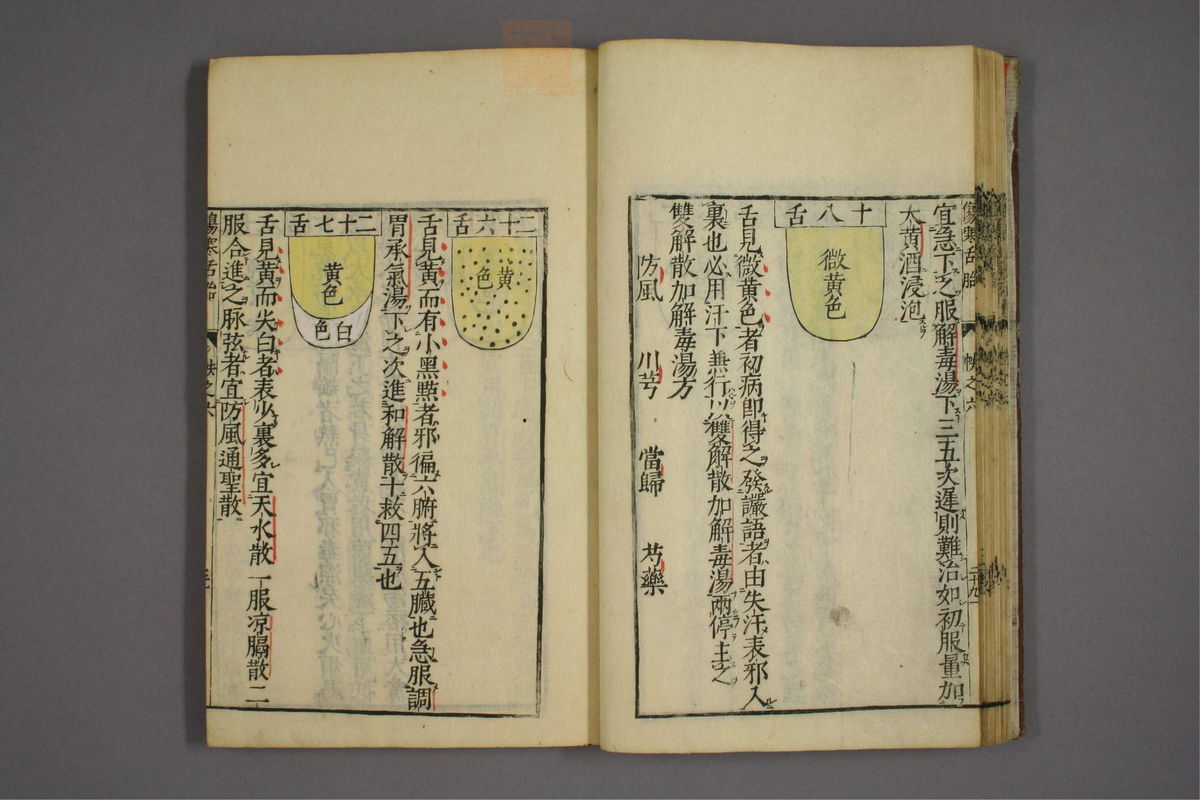 傷寒舌胎
帙之六
二十九
宜急下之服解毒湯下三五次遲則難治如初服量加
大黃酒浸泡
十八舌
微黃色
舌見微黃色者初病即得之發讝語者由失汗表邪入
裏也必用汗下兼行以雙解散加解毒湯兩停主之
雙解散加解毒湯方
防風 川芎 當歸 芍藥
二十六舌
黃色
舌見黃而有小黑㸃者邪徧六腑將入五臟也急服調
胃承氣湯下之次進和解散十救四五也
二十七舌
黃色
白色
舌見黃而尖白者表少裏多宜天水散一服凉膈散二
服合進之脉弦者宜防風通聖散
傷寒舌胎
帙之六